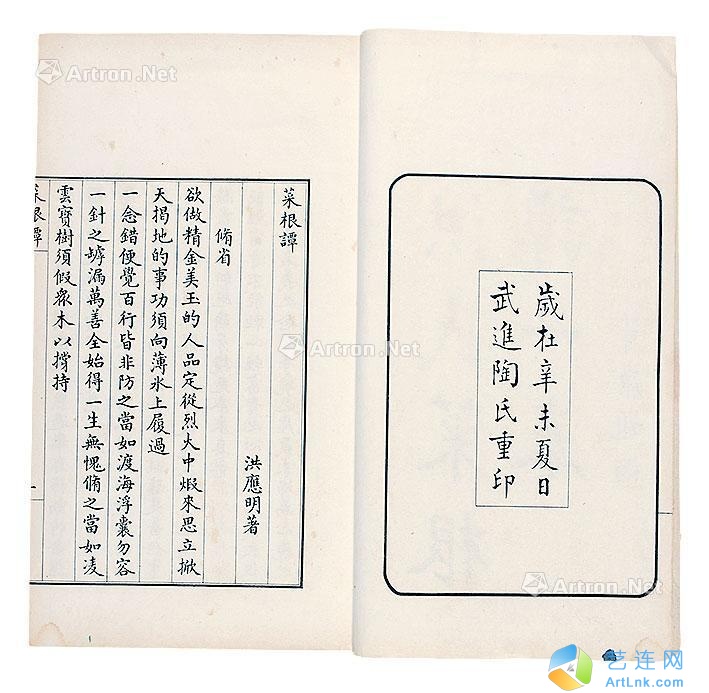 歲在辛未夏日
武進陶氏重印
菜根譚
洪應明著
脩省
欲做精金美玉的人品定從烈火中煅來思立掀
天揭地的事功須向薄氷上履過
一念錯便覺百行皆非防之當如渡海浮囊勿容
一針之罅漏萬善全始得一生無愧脩之當如凌
雲寶樹須假衆木以撐持
菜根譚
一
Artron.Net
Artron.Net
Artron.Net
Artron.Net
Artron.Net
艺连网
ArtLnk.com